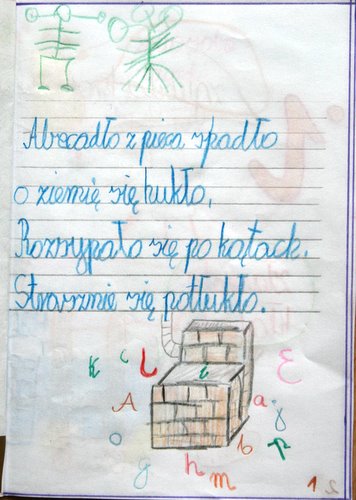 Abecadło z pieca spadło
o ziemię się hukło,
Rozsypało się po kątach.
Strasznie się potłukło.
k c L i E
A a j
o b p
y h m
1